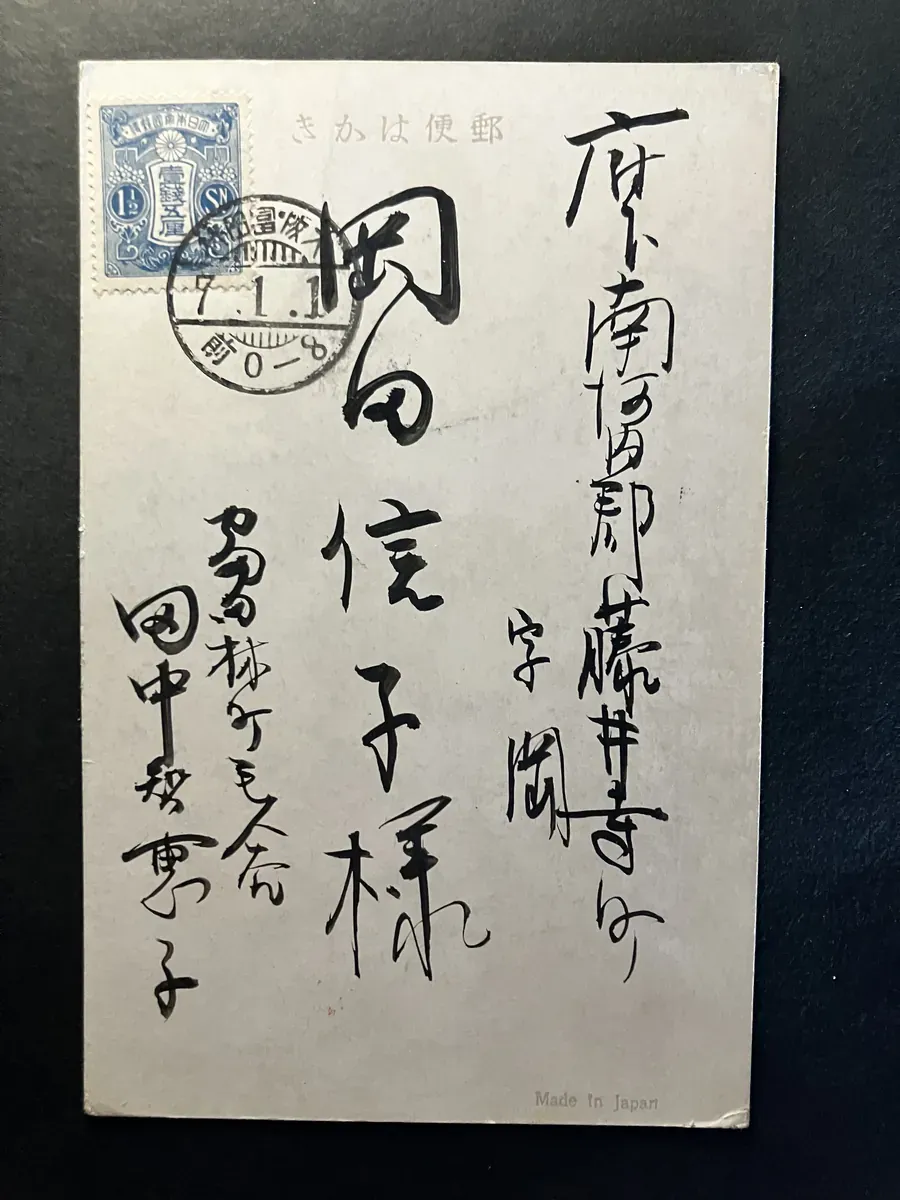 郵便はかき
大日本帝國郵便
壹錢五厘
1½
SN
大阪・富田林
7.1.1
前0-8
府下南河内郡藤井寺町
字岡
岡田信子様
富田林町毛人谷
田中智恵子
Made in Japan